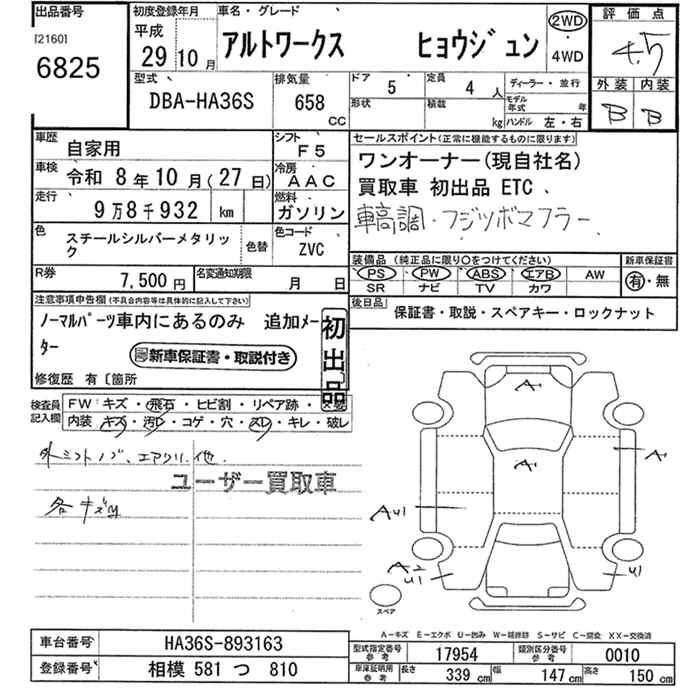 出品番号
[2160]
6825
初度登録年月
平成
29 10 月
車名・グレード
アルトワークス ヒョウジュン
2WD
・
4WD
評価点
4.5
外装 内装
B B
型式
DBA-HA36S
排気量
658
CC
ドア
5
定員
4 人
形状
積載
kg
ディーラー・並行
モデル年式 年
ハンドル 左・右
車歴
自家用
シフト
F5
車検
令和 8年10月(27日)
冷房
AAC
走行
9万8千932 km
燃料
ガソリン
色
スチールシルバーメタリック
色替
色コード
ZVC
R券
7,500円
名変通知期限
月 日
セールスポイント(正常に機能するものに限ります)
ワンオーナー(現自社名)
買取車 初出品 ETC 、
車高調・フジツボマフラー
装備品 (純正品に限り○をつけてください)
PS PW ABS エアB AW
SR ナビ TV カワ
新車保証書
有・無
後日品
保証書・取説・スペアキー・ロックナット
注意事項申告欄(不具合内容等は具体的に記入して下さい)
ノーマルパーツ車内にあるのみ 追加メーター
新車保証書・取説付き
初出品
修復歴 有〔箇所
検査員記入欄
FW キズ・飛石・ヒビ割・リペア跡・
内装 キズ・汚レ・コゲ・穴・スレ・キレ・破レ
外シフトノブ、エアクリ、他
ユーザー買取車
各キズU
A
A
A
AU1
A2
U1
U1
スペア
A-キズ E-エクボ U-凹み W-補修跡 S-サビ C-腐食 XX-交換済
車台番号
HA36S-893163
登録番号
相模 581 つ 810
型式指定番号
参考
17954
類別区分番号
参考
0010
車庫証明用
参考
長さ 339 cm 幅 147 cm 高さ 150 cm